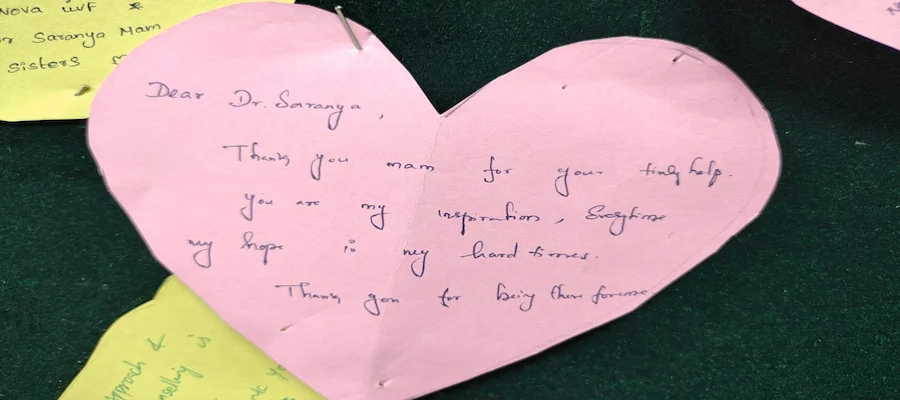 Nova IVF &
Dr Saranya Mam
Sisters
Dear Dr. Saranya,
Thank you mam for your timly help.
you are my inspiration, Everytime
my hope is my hard times.
Thank you for being there for me
Approach &
is